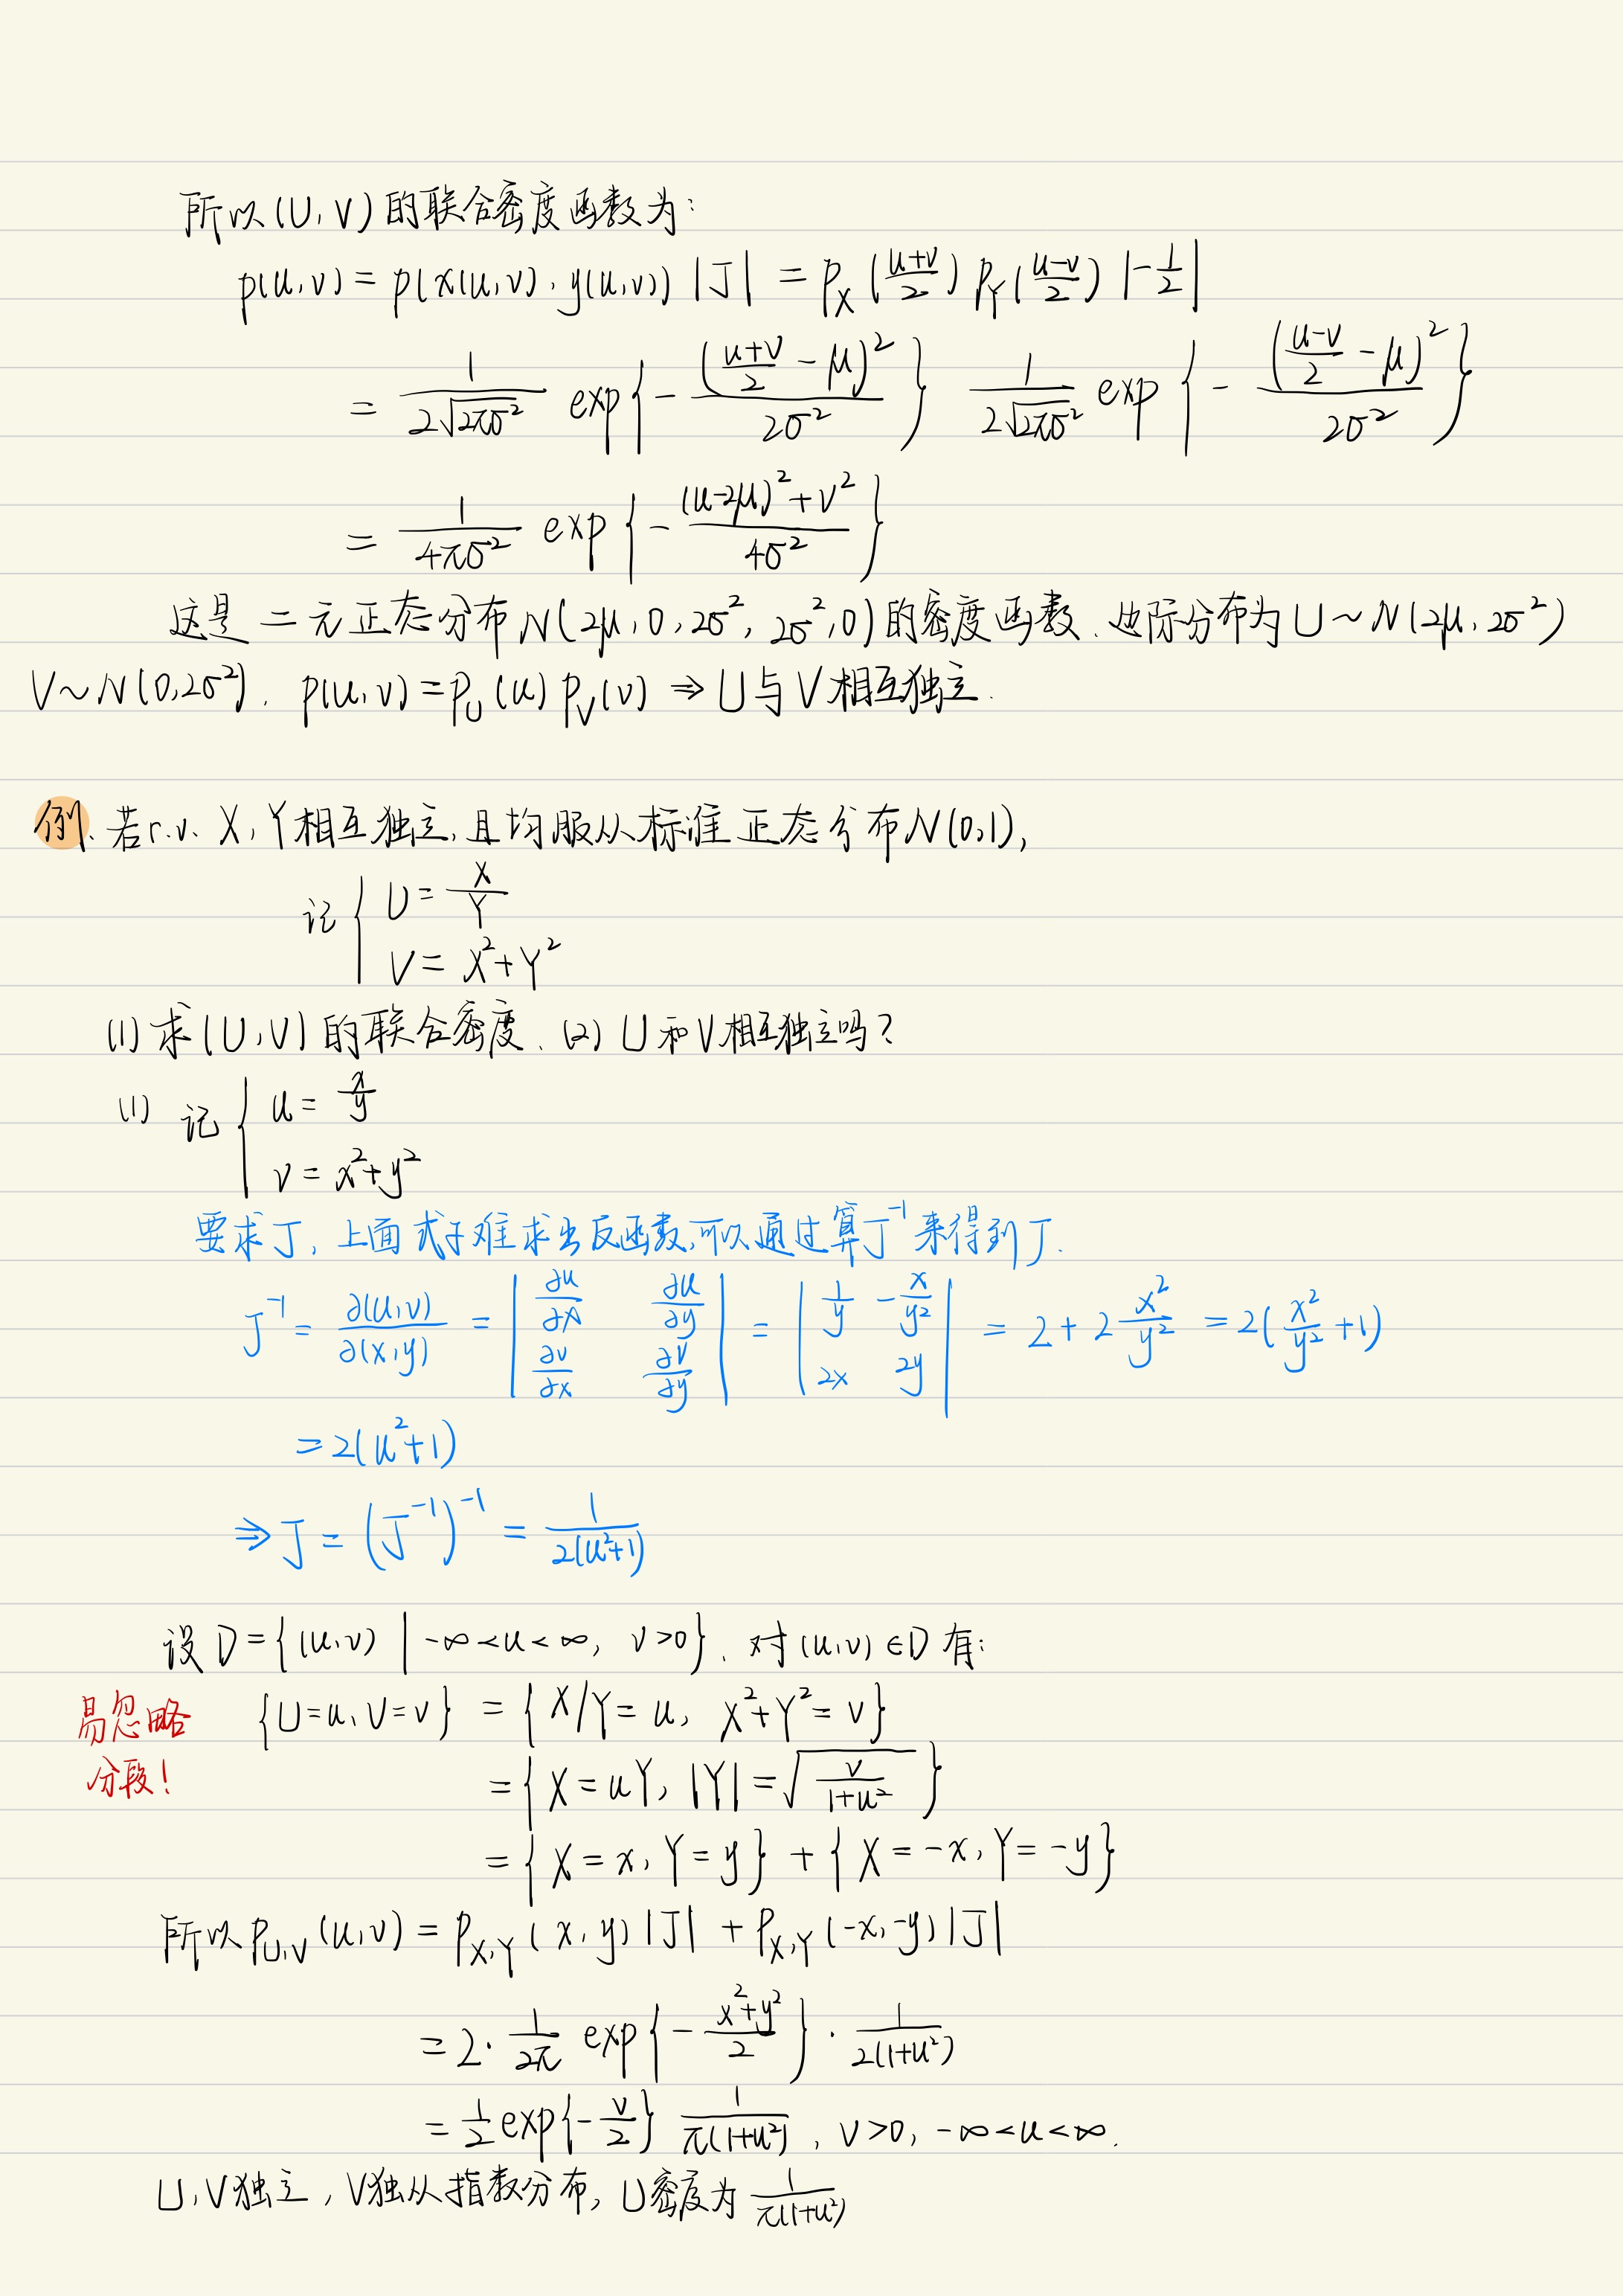 所以(U,V)的联合密度函数为:
p(u,v) = p(x(u,v), y(u,v)) |J| = p_X(\frac{u+v}{2}) p_Y(\frac{u-v}{2}) |-\frac{1}{2}|
= \frac{1}{2\sqrt{2\pi\sigma^2}} exp{-\frac{(\frac{u+v}{2}-\mu)^2}{2\sigma^2}} \frac{1}{2\sqrt{2\pi\sigma^2}} exp{-\frac{(\frac{u-v}{2}-\mu)^2}{2\sigma^2}}
= \frac{1}{4\pi\sigma^2} exp{-\frac{(u-2\mu)^2+v^2}{4\sigma^2}}
这是二元正态分布N(2μ,0,2σ²,2σ²,0)的密度函数. 边际分布为U~N(2μ,2σ²)
V~N(0,2σ²). p(u,v)=p_U(u)p_V(v) ⇒ U与V相互独立.
例. 若r.v. X,Y相互独立,且均服从标准正态分布N(0,1),
记 { U = \frac{X}{Y}
V = X²+Y²
(1)求(U,V)的联合密度. (2) U和V相互独立吗?
(1) 记 { u = \frac{x}{y}
v = x²+y²
要求J, 上面式子难求出反函数,可以通过算J⁻¹来得到J.
J⁻¹ = \frac{∂(u,v)}{∂(x,y)} = \begin{vmatrix} \frac{∂u}{∂x} & \frac{∂u}{∂y} \\ \frac{∂v}{∂x} & \frac{∂v}{∂y} \end{vmatrix} = \begin{vmatrix} \frac{1}{y} & -\frac{x}{y^2} \\ 2x & 2y \end{vmatrix} = 2+2\frac{x^2}{y^2} = 2(\frac{x^2}{y^2}+1)
= 2(u²+1)
⇒ J = (J⁻¹)⁻¹ = \frac{1}{2(u²+1)}
设D={(u,v) | -∞<u<∞, v>0}. 对(u,v)∈D有:
易忽略 {U=u,V=v} = {X/Y=u, X²+Y²=v}
分段! = {X=uY, |Y|=\sqrt{\frac{v}{1+u²}}}
= {X=x,Y=y} + {X=-x,Y=-y}
所以p_{U,V}(u,v) = p_{X,Y}(x,y)|J| + p_{X,Y}(-x,-y)|J|
= 2·\frac{1}{2\pi} exp{-\frac{x²+y²}{2}}·\frac{1}{2(1+u²)}
= \frac{1}{2} exp{-\frac{v}{2}} \frac{1}{\pi(1+u²)}, v>0, -∞<u<∞.
U,V独立, V独从指数分布, U密度为\frac{1}{\pi(1+u²)}